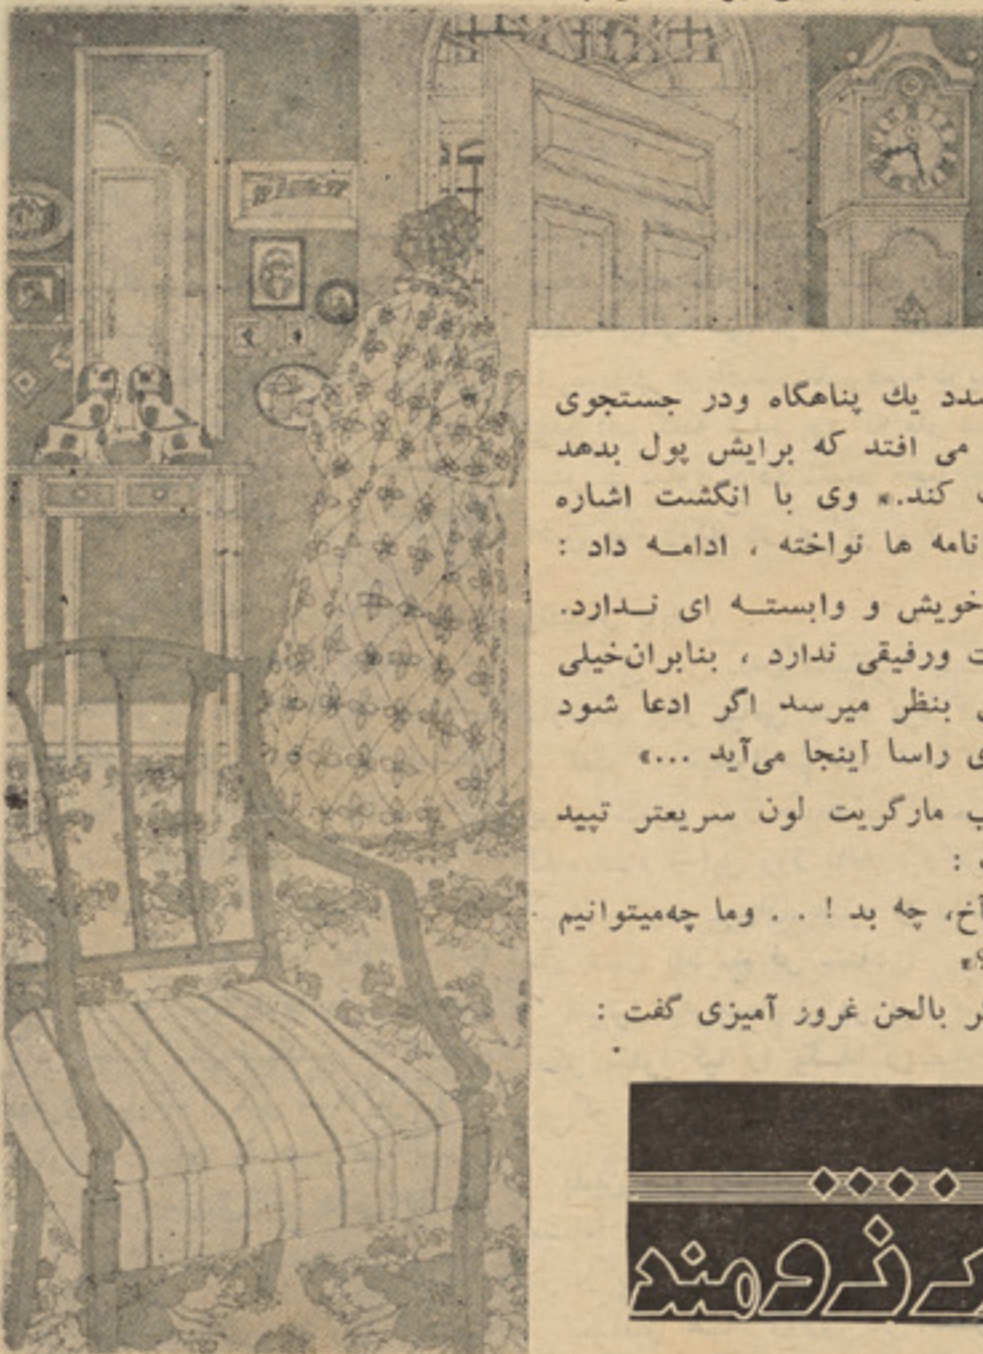 یك پناهگاه ودر جستجوی
می افتد که برایش پول بدهد
کند.» وی با انگشت اشاره
نامه ها نواخته ، ادامــه داد :
خویش و وابستــه ای نــدارد.
ورفیقی ندارد ، بنابران‌خیلی
بنظر میرسد اگر ادعا شود
راسا اینجا می‌آید ...»
مارگریت لون سریعتر تپید
:
آخ، چه بد ! . . وما چه‌میتوانیم
؟»
بالحن غرور آمیزی گفت :